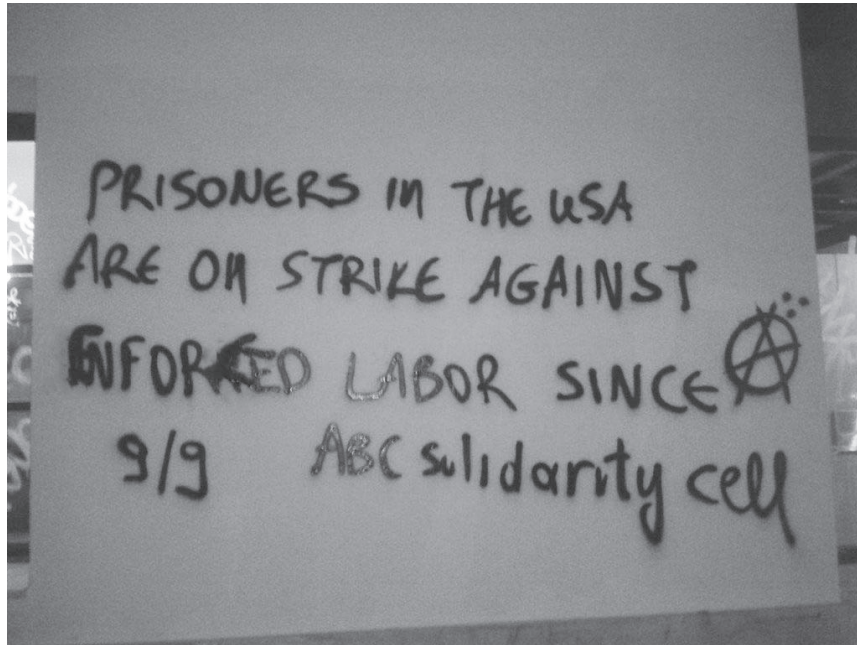 PRISONERS IN THE USA
ARE ON STRIKE AGAINST
ENFORCED LABOR SINCE
9/9 ABC solidarity cell